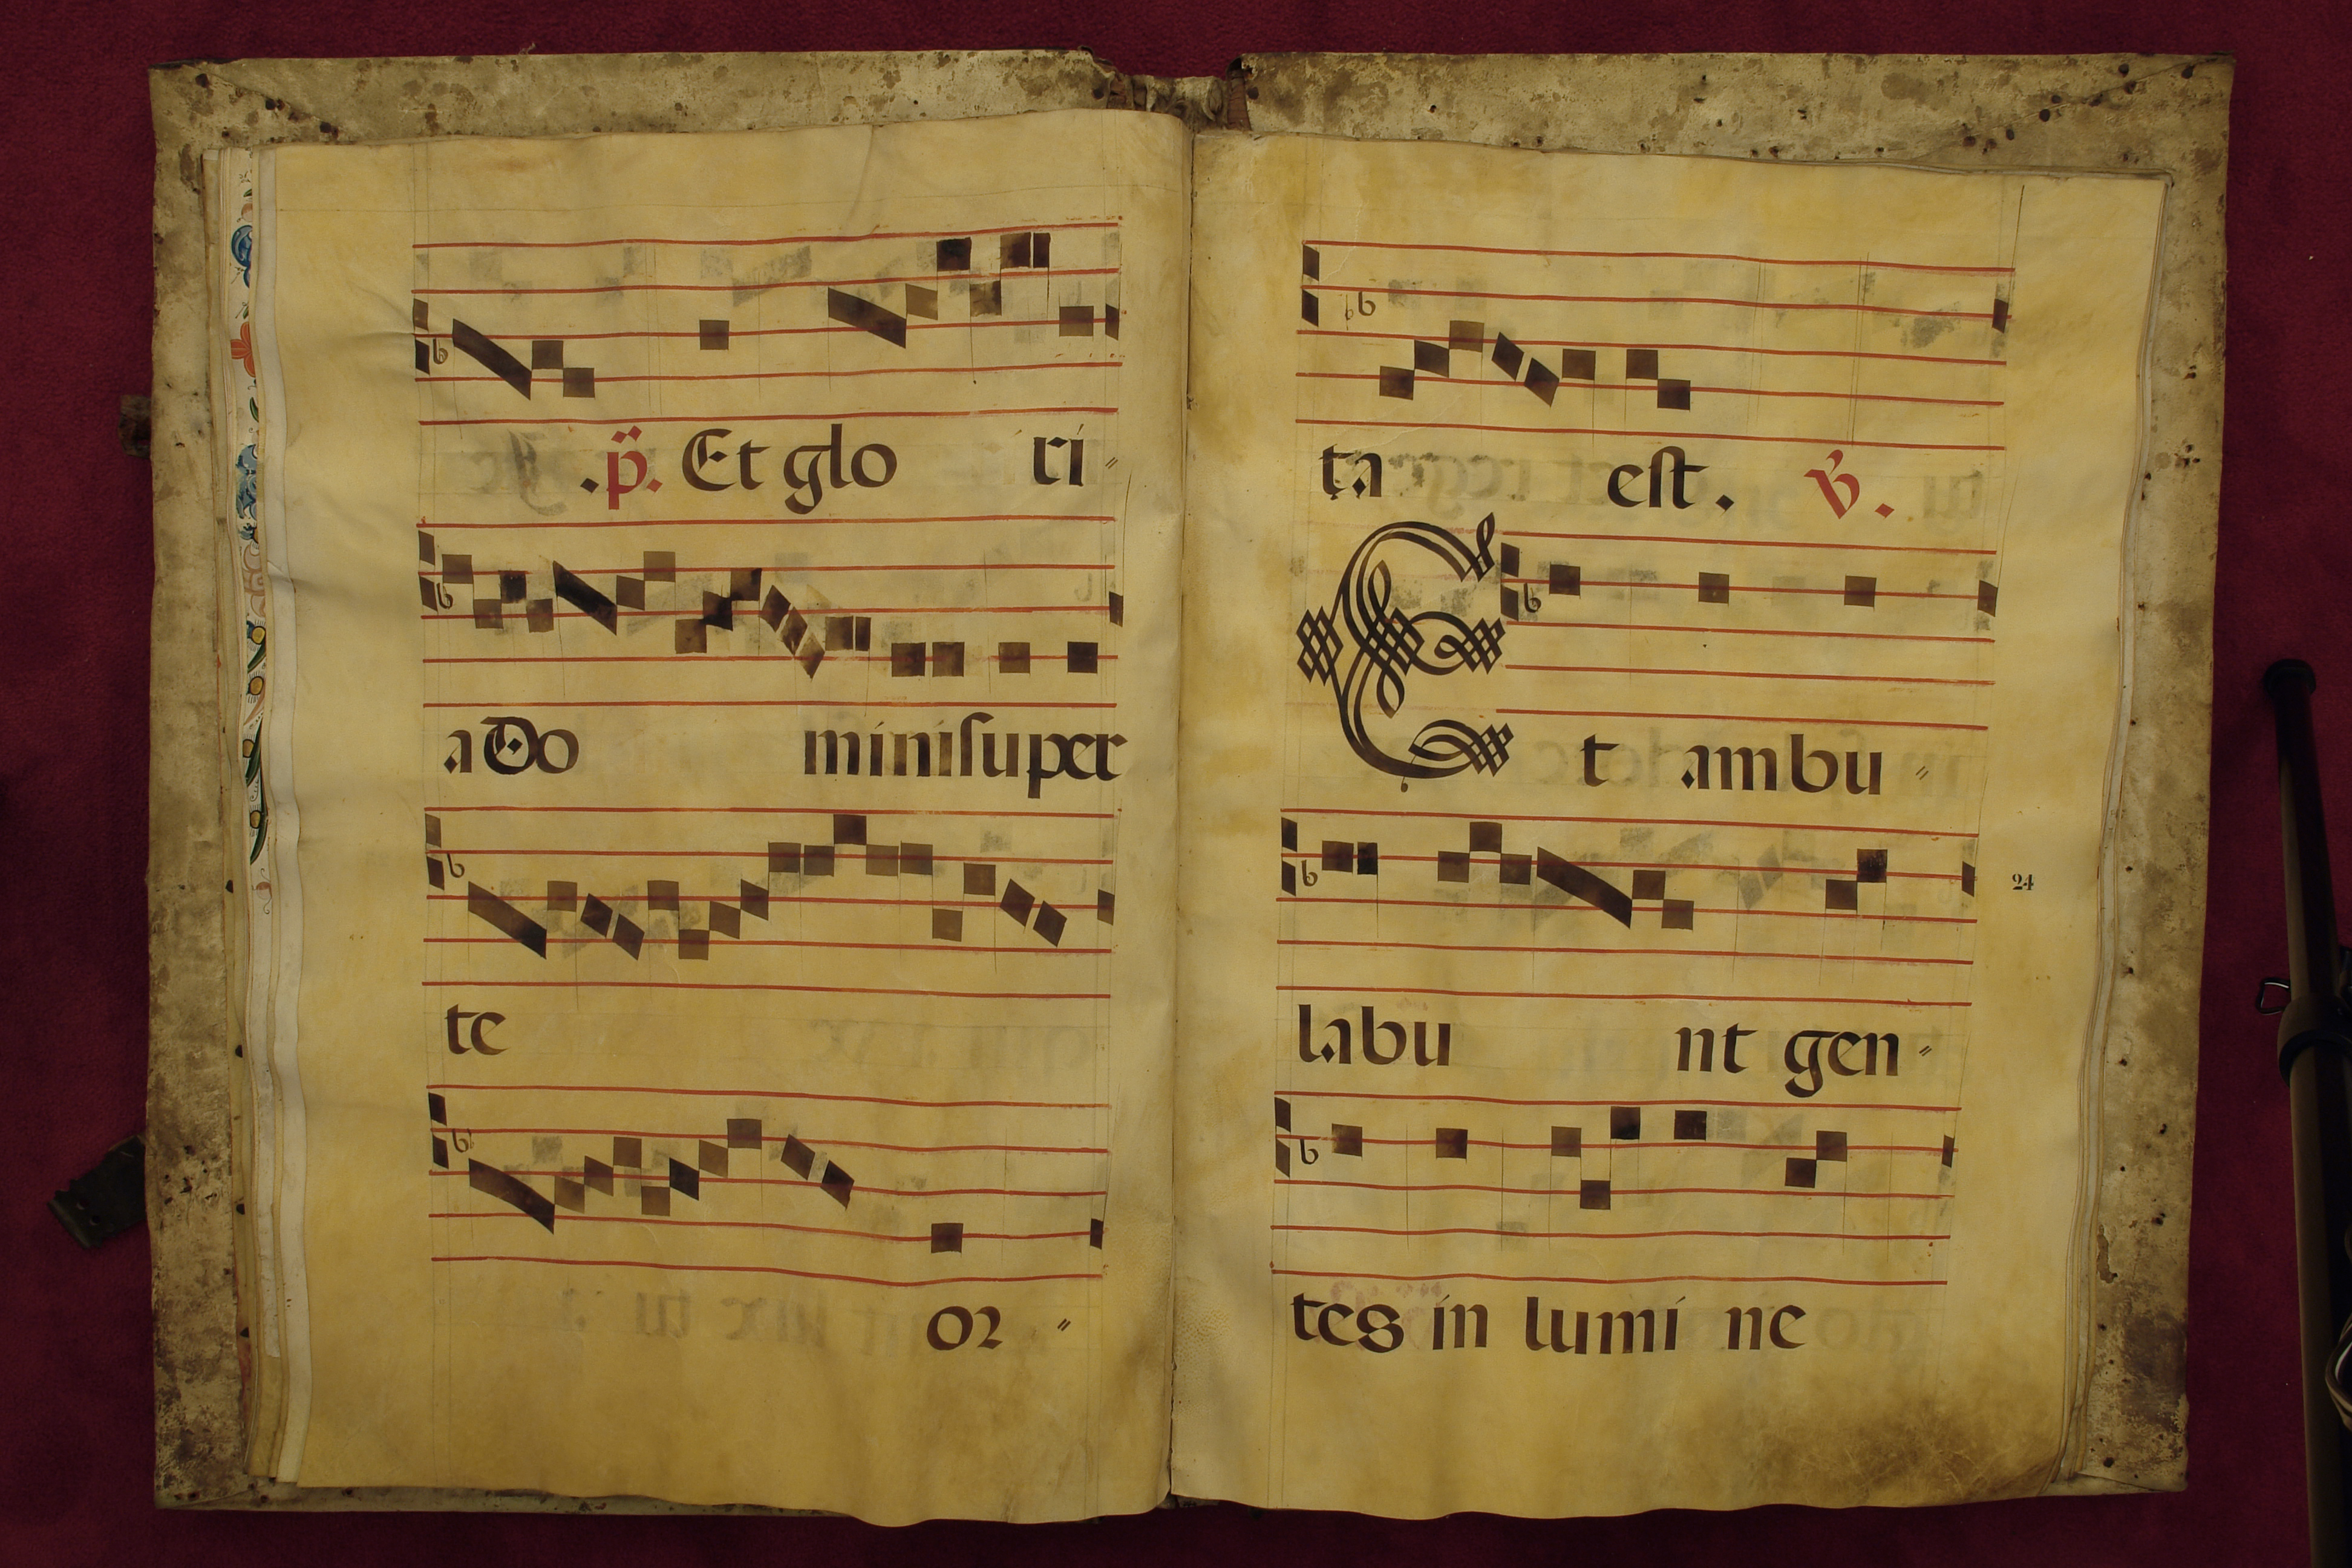 .p̈. Et glo ri〃
a Do mini super
te
or〃
ta est. v̇.
Et ambu〃
labu nt gen〃
24
tes in lumi ne